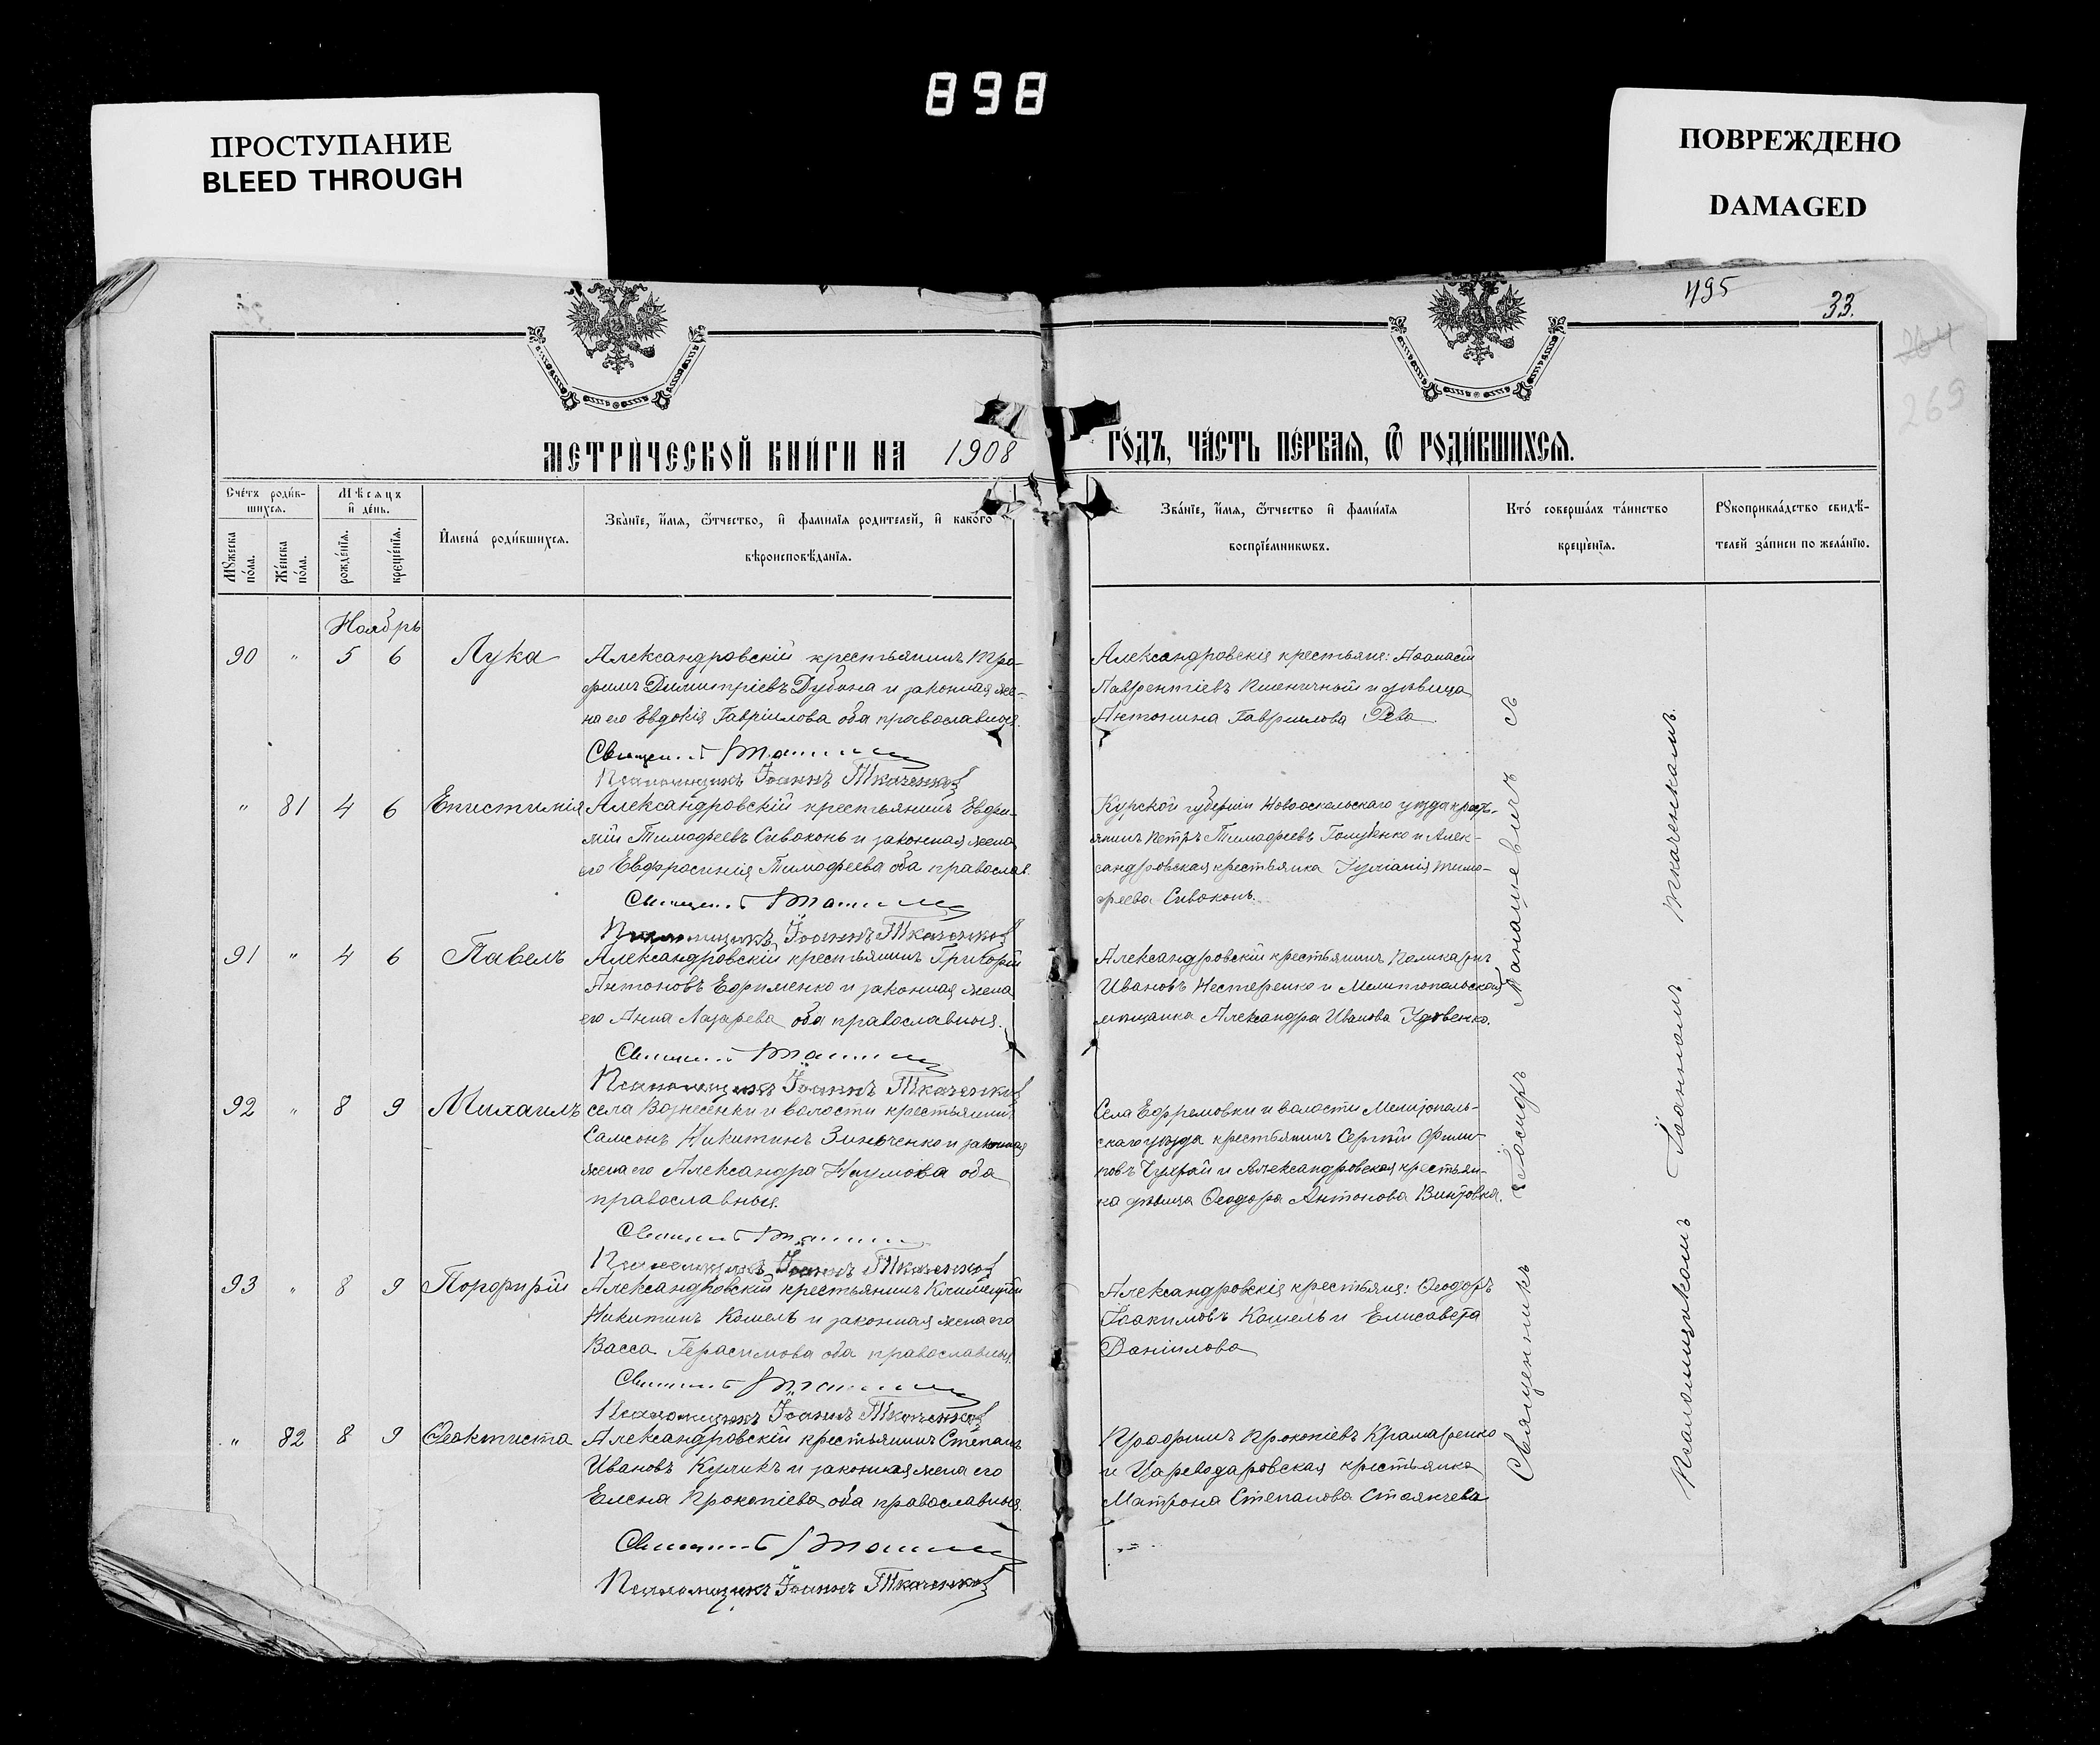 898
ПРОСТУПАНИЕ
BLEED THROUGH
ПОВРЕЖДЕНО
DAMAGED
495
33.
264
269
МЕТРИЧЕСКОЙ КНИГИ НА 1908 ГОДЪ, ЧАСТЬ ПЕРВАЯ, Ѿ РОДИВШИХСЯ.
Счетъ родив-
шихся.
Мужеска
пола.
Женска
пола.
Мѣсяцъ
и день.
рожденїя.
крещенїя.
Имена родившихся.
Званїе, имя, ѿтчество, и фамилїя родителей, и какого
вѣроисповѣданїя.
Званїе, имя, ѿтчество и фамилїя
воспрїемниковъ.
Кто совершалъ таинство
крещенїя.
Рукоприкладство свидѣ-
телей записи по желанїю.
Ноябрь
90 " 5 6 Лука
Александровскій крестьянинъ Тро-
фимъ Димитріевъ Дубина и законная же-
на его Евдокія Гавріилова оба православныя.
Священникъ
Псаломщикъ Іоаннъ Ткаченковъ
Александровскія крестьяне: Аѳанасій
Лаврентіевъ Пшеничный и дѣвица
Антонина Гавриилова Рева
" 81 4 6 Епистимія
Александровскій крестьянинъ Евфи-
мій Тимофеевъ Сивоконь и законная жена
его Евфросинія Тимофеева оба православ.
Священникъ
Псаломщикъ Іоаннъ Ткаченковъ
Курской губерніи Новооскольскаго уѣзда кресть-
янинъ Петръ Тимофеевъ Голубенко и Алек-
сандровская крестьянка Іуліанія Тимо-
феева Сивоконь.
91 " 4 6 Павелъ
Александровскій крестьянинъ Григорій
Антоновъ Ефименко и законная жена
его Анна Лазарева оба православныя.
Священникъ
Псаломщикъ Іоаннъ Ткаченковъ
Александровскій крестьянинъ Поликарпъ
Ивановъ Нестеренко и Мелитопольская
мѣщанка Александра Иванова Удовенко.
92 " 8 9 Михаилъ
села Вознесенки и волости крестьянинъ
Самсонъ Никитинъ Зинченко и законная
жена его Александра Наумова оба
православныя.
Священникъ
Псаломщикъ Іоаннъ Ткаченковъ
Села Ефремовки и волости Мелитополь-
скаго уѣзда крестьянинъ Сергій Фили-
повъ Чухрай и Александровская крестьян-
ка дѣвица Ѳеодора Антонова Винтовка.
93 " 8 9 Порфирій
Александровскій крестьянинъ
Никитинъ Кошель и законная жена его
Васса Герасимова оба православныя.
Священникъ
Псаломщикъ Іоаннъ Ткаченковъ
Александровскія крестьяне: Ѳеодоръ
Іоакимовъ Кошель и Елисавета
Даніилова
" 82 8 9 Ѳеоктиста
Александровскій крестьянинъ Стефанъ
Ивановъ Куликъ и законная жена его
Елена Прокопіева оба православныя.
Священникъ
Псаломщикъ Іоаннъ Ткаченковъ
Трофимъ Прокопіевъ Крамаренко
и Цареводаровская крестьянка
Матрона Степанова Стоянчева
Священникъ Іосифъ Танашевичъ съ
Псаломщикомъ Іоанномъ Ткаченкомъ.